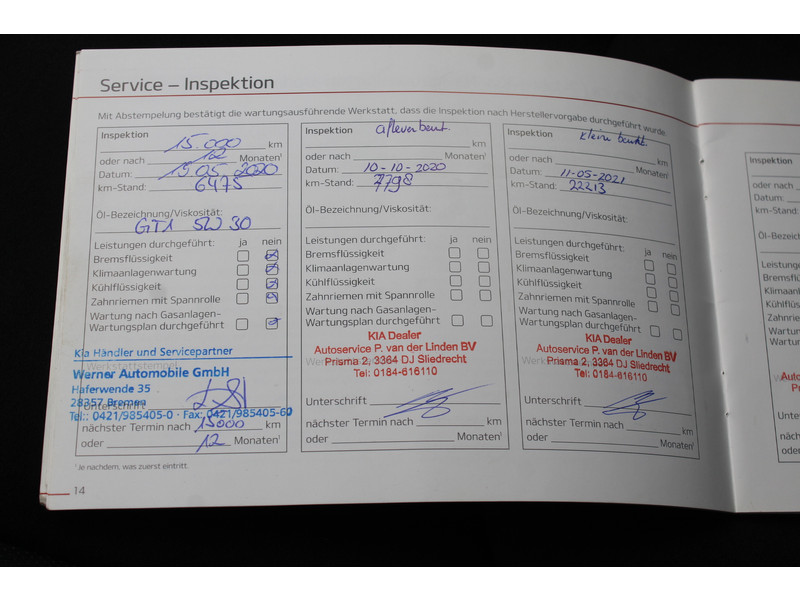 Service – Inspektion
Mit Abstempelung bestätigt die wartungsausführende Werkstatt, dass die Inspektion nach Herstellervorgabe durchgeführt wurde.
Inspektion
15.000 km
oder nach 12 Monaten¹
Datum: 15.05.2020
km-Stand: 6475
Öl-Bezeichnung/Viskosität:
5W30
Leistungen durchgeführt: ja nein
Bremsflüssigkeit
Klimaanlagenwartung
Kühlflüssigkeit
Zahnriemen mit Spannrolle
Wartung nach Gasanlagen-
Wartungsplan durchgeführt
Kia Händler und Servicepartner
Werkstattstempel
Werner Automobile GmbH
Haferwende 35
28357 Bremen
Unterschrift
Tel.: 0421/985405-0 · Fax: 0421/985405-60
nächster Termin nach 15000 km
oder 12 Monaten¹
¹ Je nachdem, was zuerst eintritt.
14
Inspektion afleverbeurt
km
oder nach Monaten¹
Datum: 10-10-2020
km-Stand: 7798
Öl-Bezeichnung/Viskosität:
Leistungen durchgeführt: ja nein
Bremsflüssigkeit
Klimaanlagenwartung
Kühlflüssigkeit
Zahnriemen mit Spannrolle
Wartung nach Gasanlagen-
Wartungsplan durchgeführt
KIA Dealer
Autoservice P. van der Linden BV
Prisma 2, 3364 DJ Sliedrecht
Tel: 0184-616110
Unterschrift
nächster Termin nach km
oder Monaten¹
Inspektion klein beurt
km
oder nach Monaten¹
Datum: 11-05-2021
km-Stand: 22213
Öl-Bezeichnung/Viskosität:
Leistungen durchgeführt: ja nein
Bremsflüssigkeit
Klimaanlagenwartung
Kühlflüssigkeit
Zahnriemen mit Spannrolle
Wartung nach Gasanlagen-
Wartungsplan durchgeführt
KIA Dealer
Autoservice P. van der Linden BV
Prisma 2, 3364 DJ Sliedrecht
Tel: 0184-616110
Unterschrift
nächster Termin nach km
oder Monaten¹
Inspektion
oder nach
Datum:
km-Stand:
Öl-Bezeichn
Leistunge
Bremsflü
Klimaanl
Kühlflüss
Zahnrie
Wartun
Wartun
Auto
Pr
Unters
nächst
oder